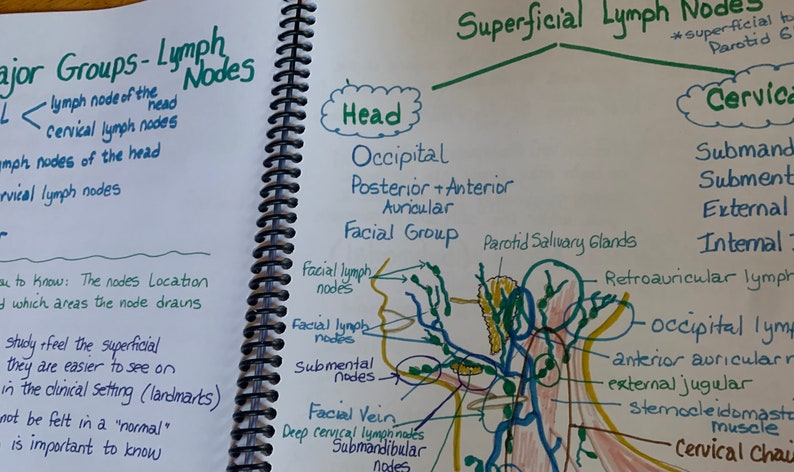 ajor Groups - Lymph
Nodes
L
lymph node of the
head
cervical lymph nodes
mph nodes of the head
rvical lymph nodes
r
ou to know: The nodes Location
d which areas the node drains
study + feel the superficial
they are easier to see on
in the clinical setting (landmarks)
not be felt in a "normal"
is important to know
Superficial Lymph Nodes
*superficial to
Parotid G
Head
Occipital
Posterior + Anterior
Auricular
Facial Group
Cervica
Submand
Subment
External
Internal J
Parotid Salivary Glands
Facial lymph
nodes
Facial lymph
nodes
Submental
nodes
Facial Vein
Deep cervical lymph nodes
Submandibular
nodes
Retroauricular lymph
occipital lymp
anterior auricular n
external jugular
Sternocleidomasto
muscle
Cervical Chai